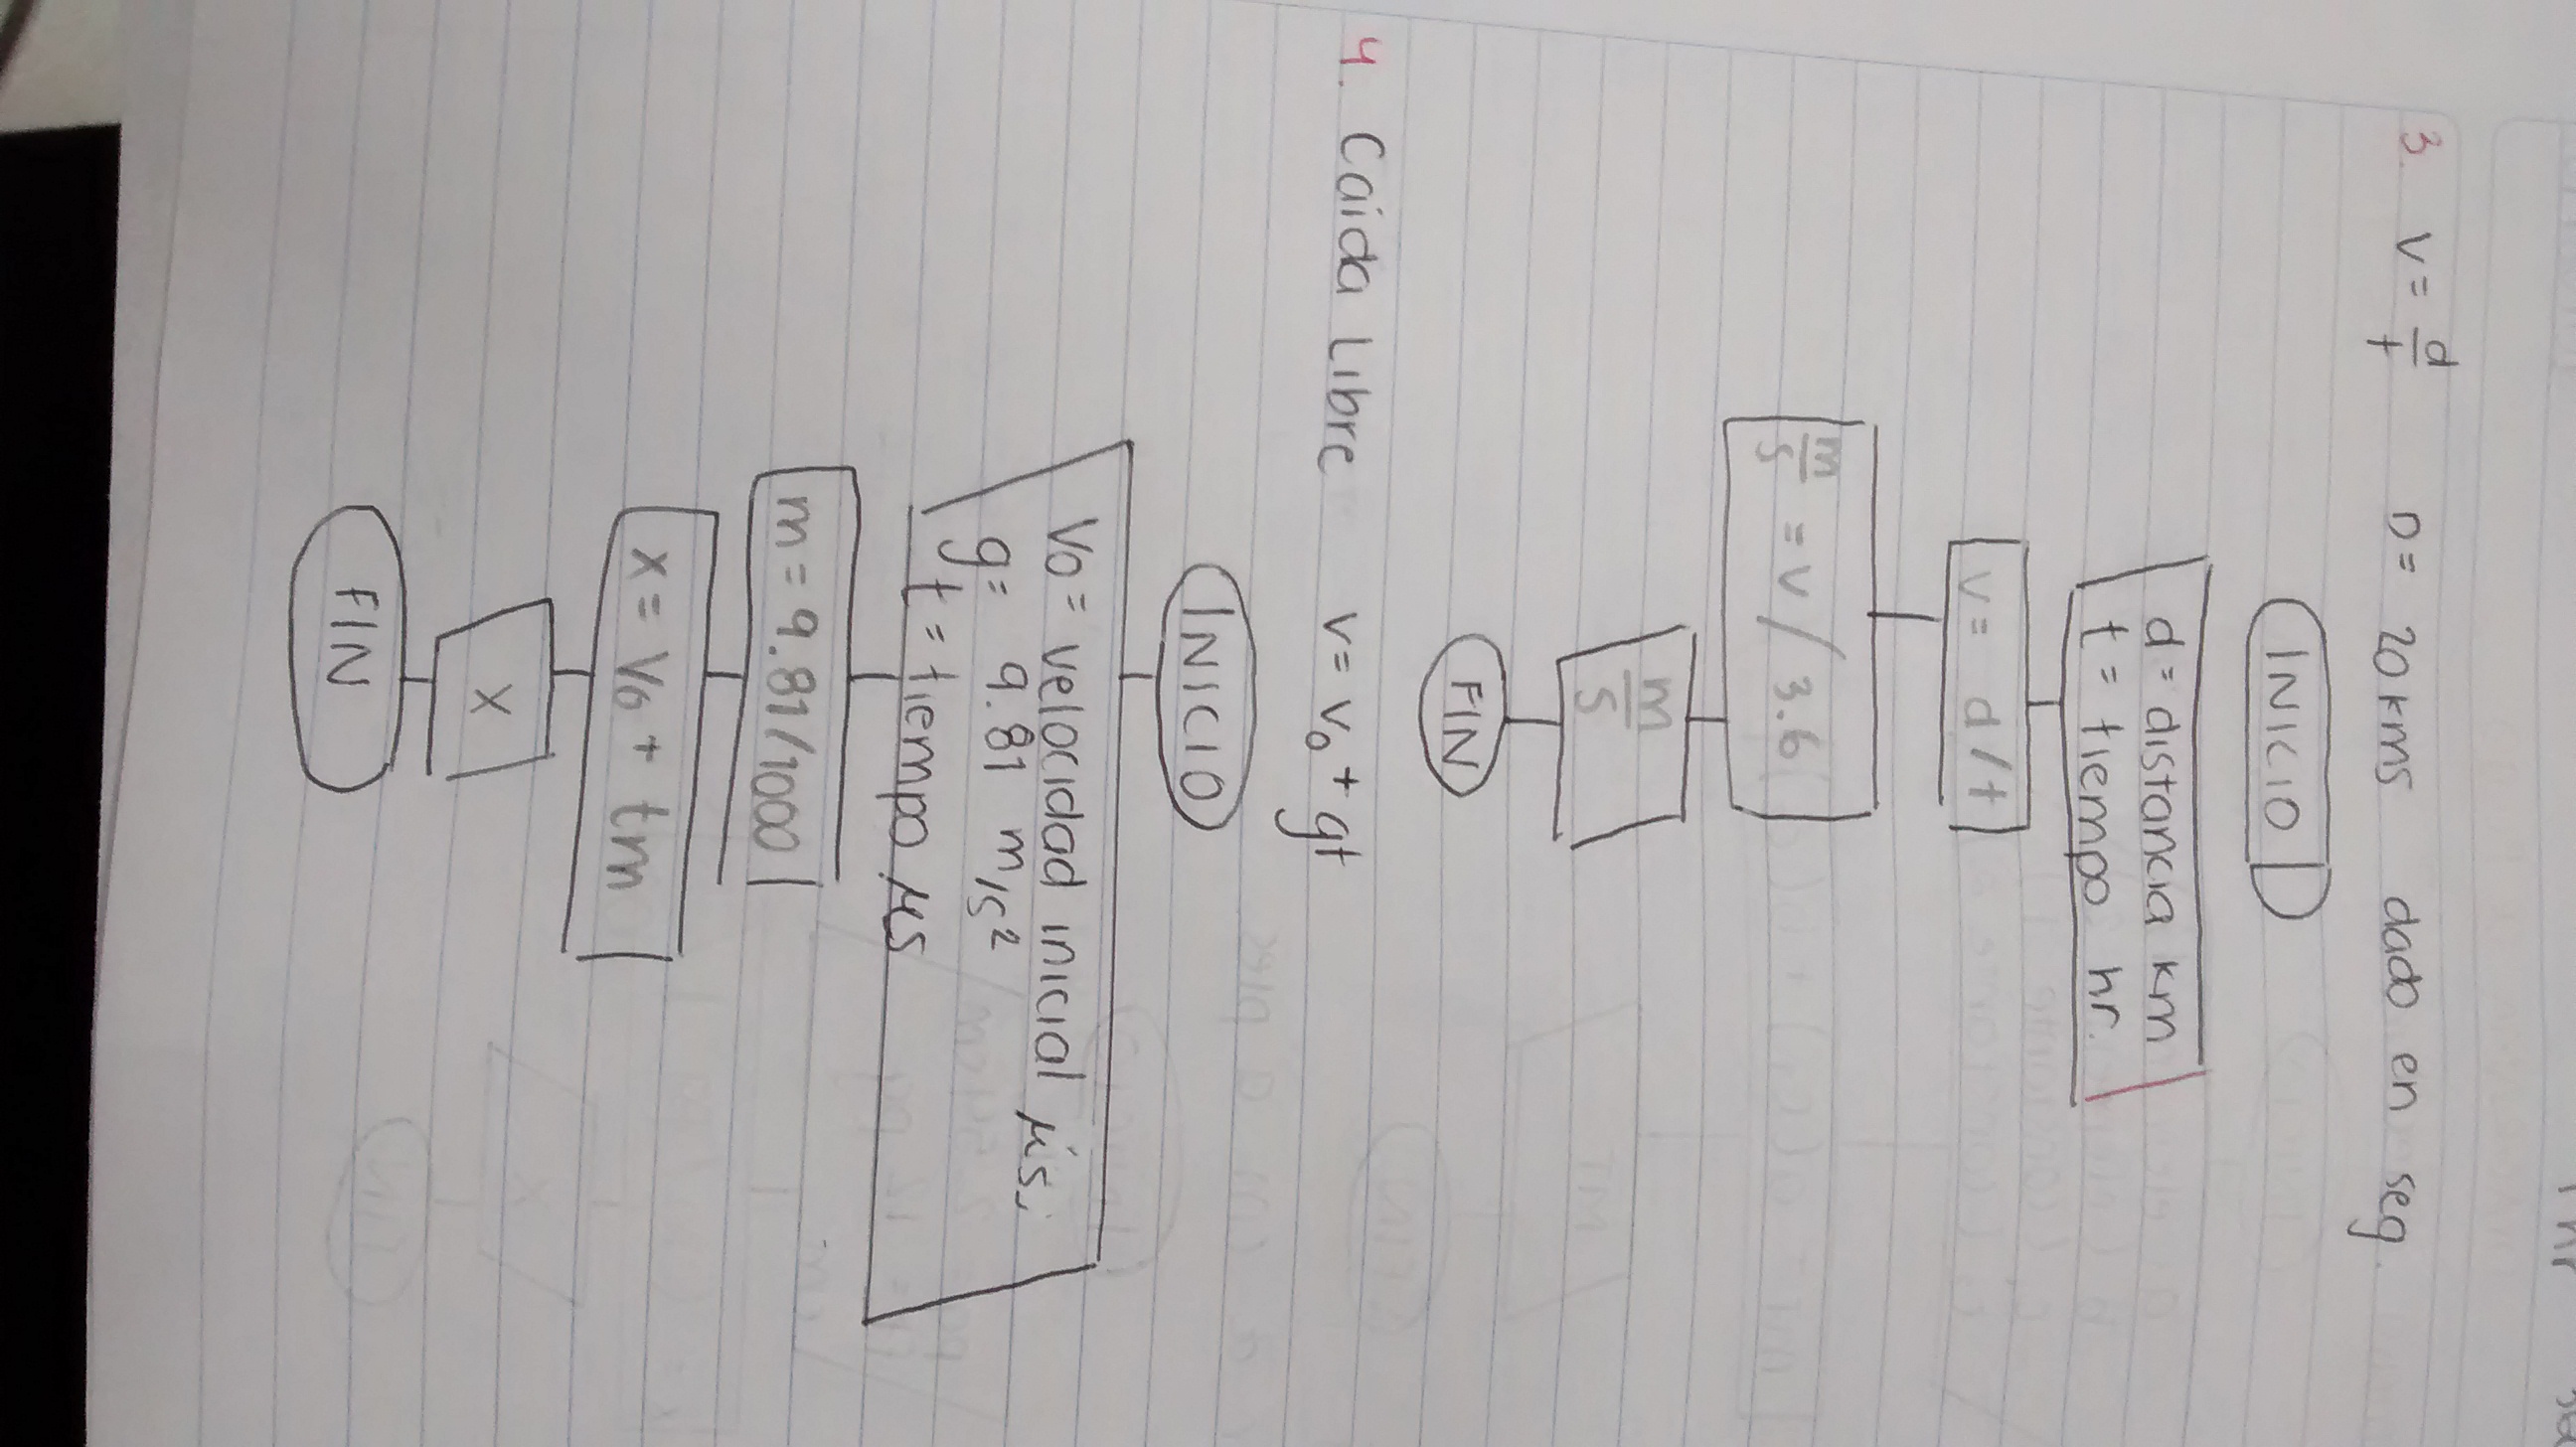 3. v = d/t   D = 20 kms dado en seg.
INICIO
d = distancia km
t = tiempo hr.
v = d/t
m/s = v/3.6
m/s
FIN
4. Caida Libre   v = v₀ + gt
INICIO
V₀ = velocidad inicial
g = 9.81 m/s²
t = tiempo μs
m = 9.81/1000
x = V₀ + tm
x
FIN